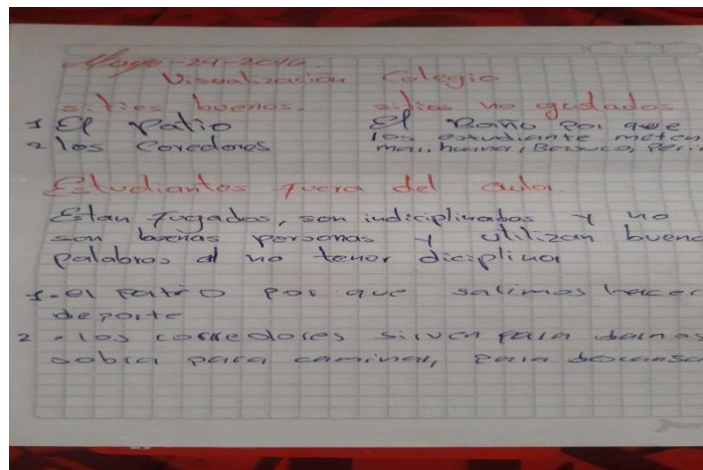 Mayo-24-2010.
Visualización Colegio
sitios buenos. sitios no gustados
1 El Patio El Baño por que
2 los Coredores los estudiante meten
mari hunner, Bazuco, Peri
Estudiantes fuera del aula.
Estan fugados, son indiciplinados y no
son buenas personas y utilizan buena
palabras al no tener diciplina
1-el patio por que salimos hacer
deporte
2 -los corredores sirven para darnos
sobra para caminar, para descansa